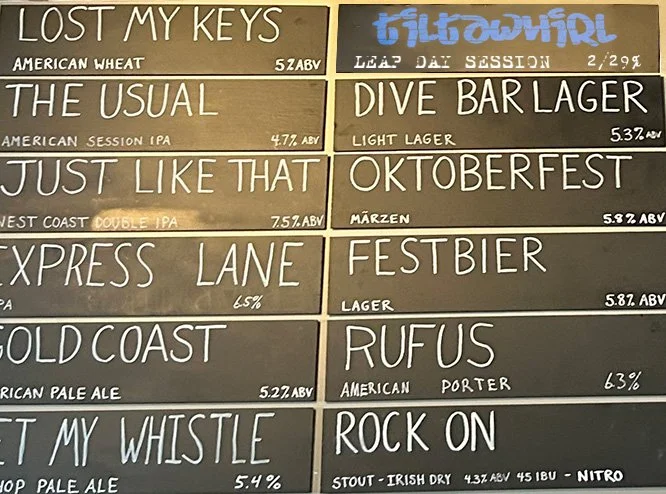 LOST MY KEYS
AMERICAN WHEAT 5% ABV
THE USUAL
AMERICAN SESSION IPA 4.7% ABV
JUST LIKE THAT
WEST COAST DOUBLE IPA 7.5% ABV
EXPRESS LANE
PA 6.5%
GOLD COAST
RICAN PALE ALE 5.2% ABV
ET MY WHISTLE
HOP PALE ALE 5.4%
tiltawhirl
LEAP DAY SESSION 2/29%
DIVE BAR LAGER
LIGHT LAGER 5.3% ABV
OKTOBERFEST
MÄRZEN 5.8% ABV
FESTBIER
LAGER 5.8% ABV
RUFUS
AMERICAN PORTER 6.3%
ROCK ON
STOUT - IRISH DRY 4.3% ABV 45 IBU - NITRO